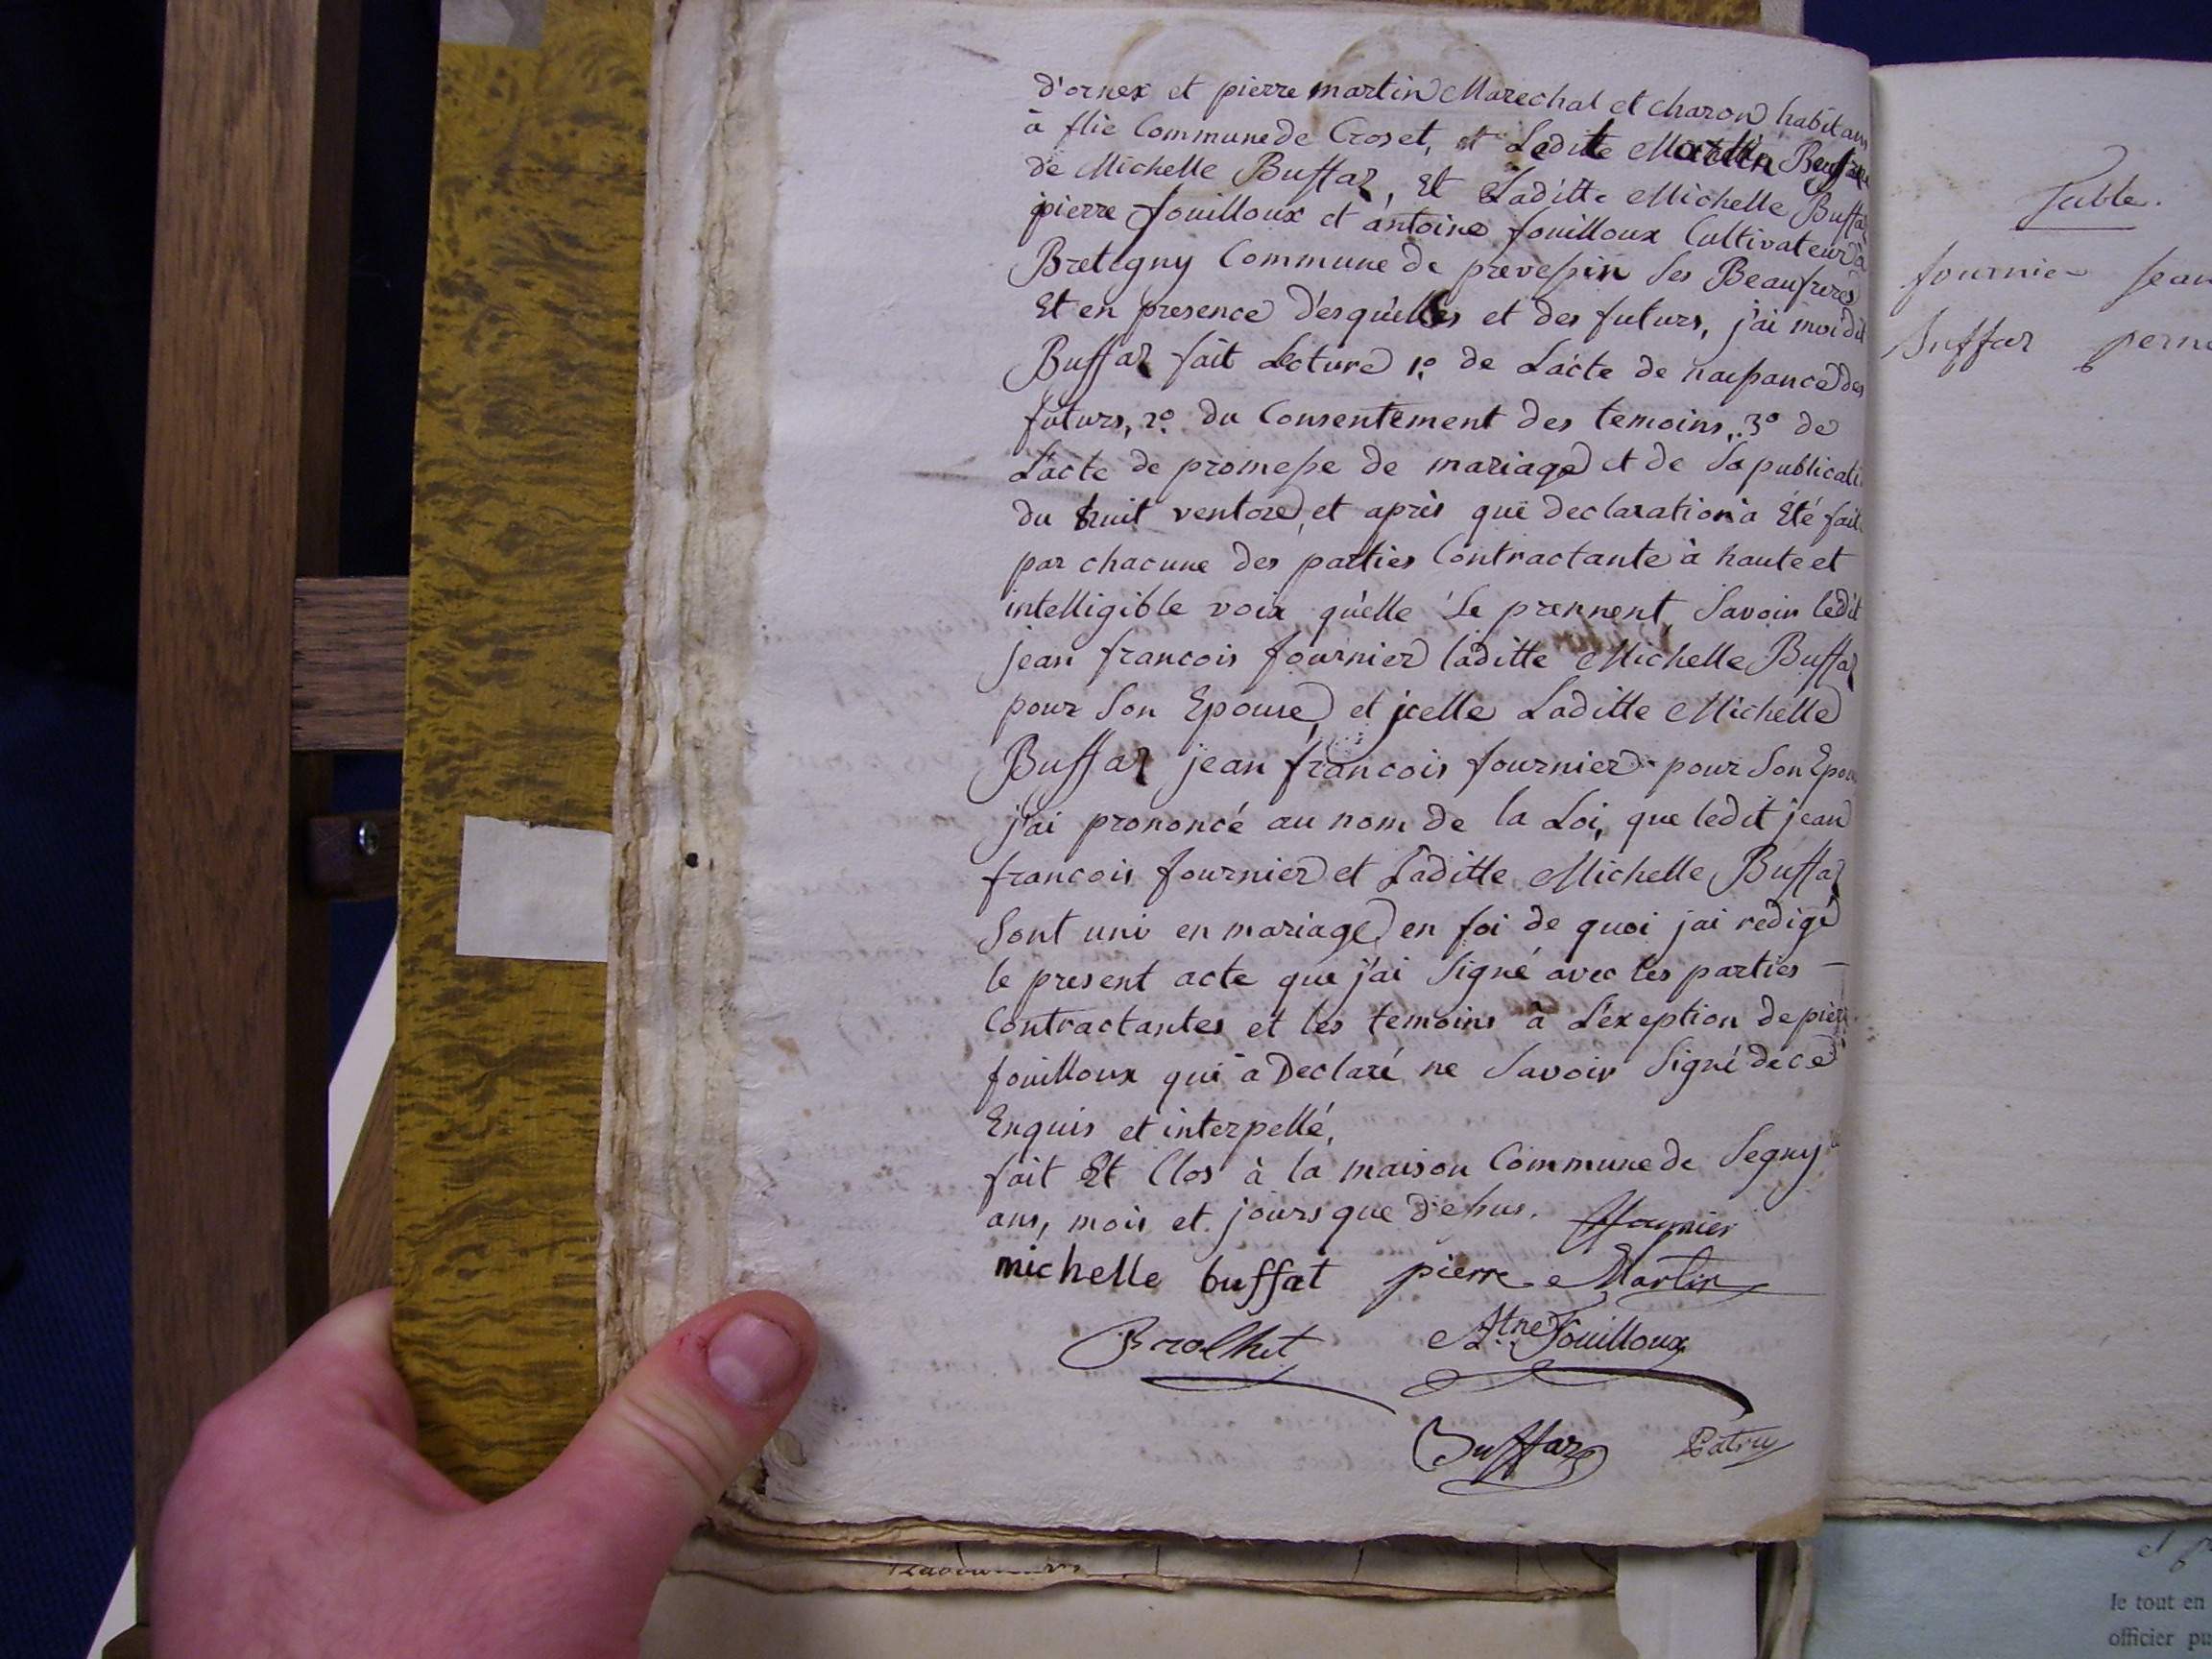 d'ornex et pierre martin Marechal et charon habitans
à flie Commune de Croset, et Leditte Martin Beaufrere
de Michelle Buffaz, Et Laditte Michelle Buffaz
pierre fouilloux et antoine fouilloux Cultivateur à
Bretegny Commune de prevessin ses Beaufreres
Et en presence desquelles et des futurs, j'ai moi dit
Buffaz fait Lecture 1º de L'acte de naissance des
futurs, 2º du Consentement des temoins, 3º de
L'acte de promesse de mariage et de sa publicati
du huit ventose, et après que declaration a Été fait
par chacune des parties Contractante à haute et
intelligible voix qu'elle se prennent, Savoir ledit
jean francois fournier laditte Michelle Buffaz
pour Son Epouse, et icelle Laditte Michelle
Buffaz jean francois fournier pour Son Epou
j'ai prononcé au nom de la Loi, que ledit jean
francois fournier et Laditte Michelle Buffaz
Sont uni en mariage, en foi de quoi jai redigé
le present acte que j'ai Signé avec les parties -
Contractantes et les temoins à L'exeption de pierre
fouilloux qui a Declaré ne Savoir Signé de ce
Enquis et interpellé,
fait Et Clos à la maison Commune de Segny
ans, mois et jours que dessus. fournier
michelle buffat pierre Martin
Brolhet Atne Fouilloux
Buffaz Patry
Table.
fournier jean
Buffaz perne
et
le tout en
officier pu